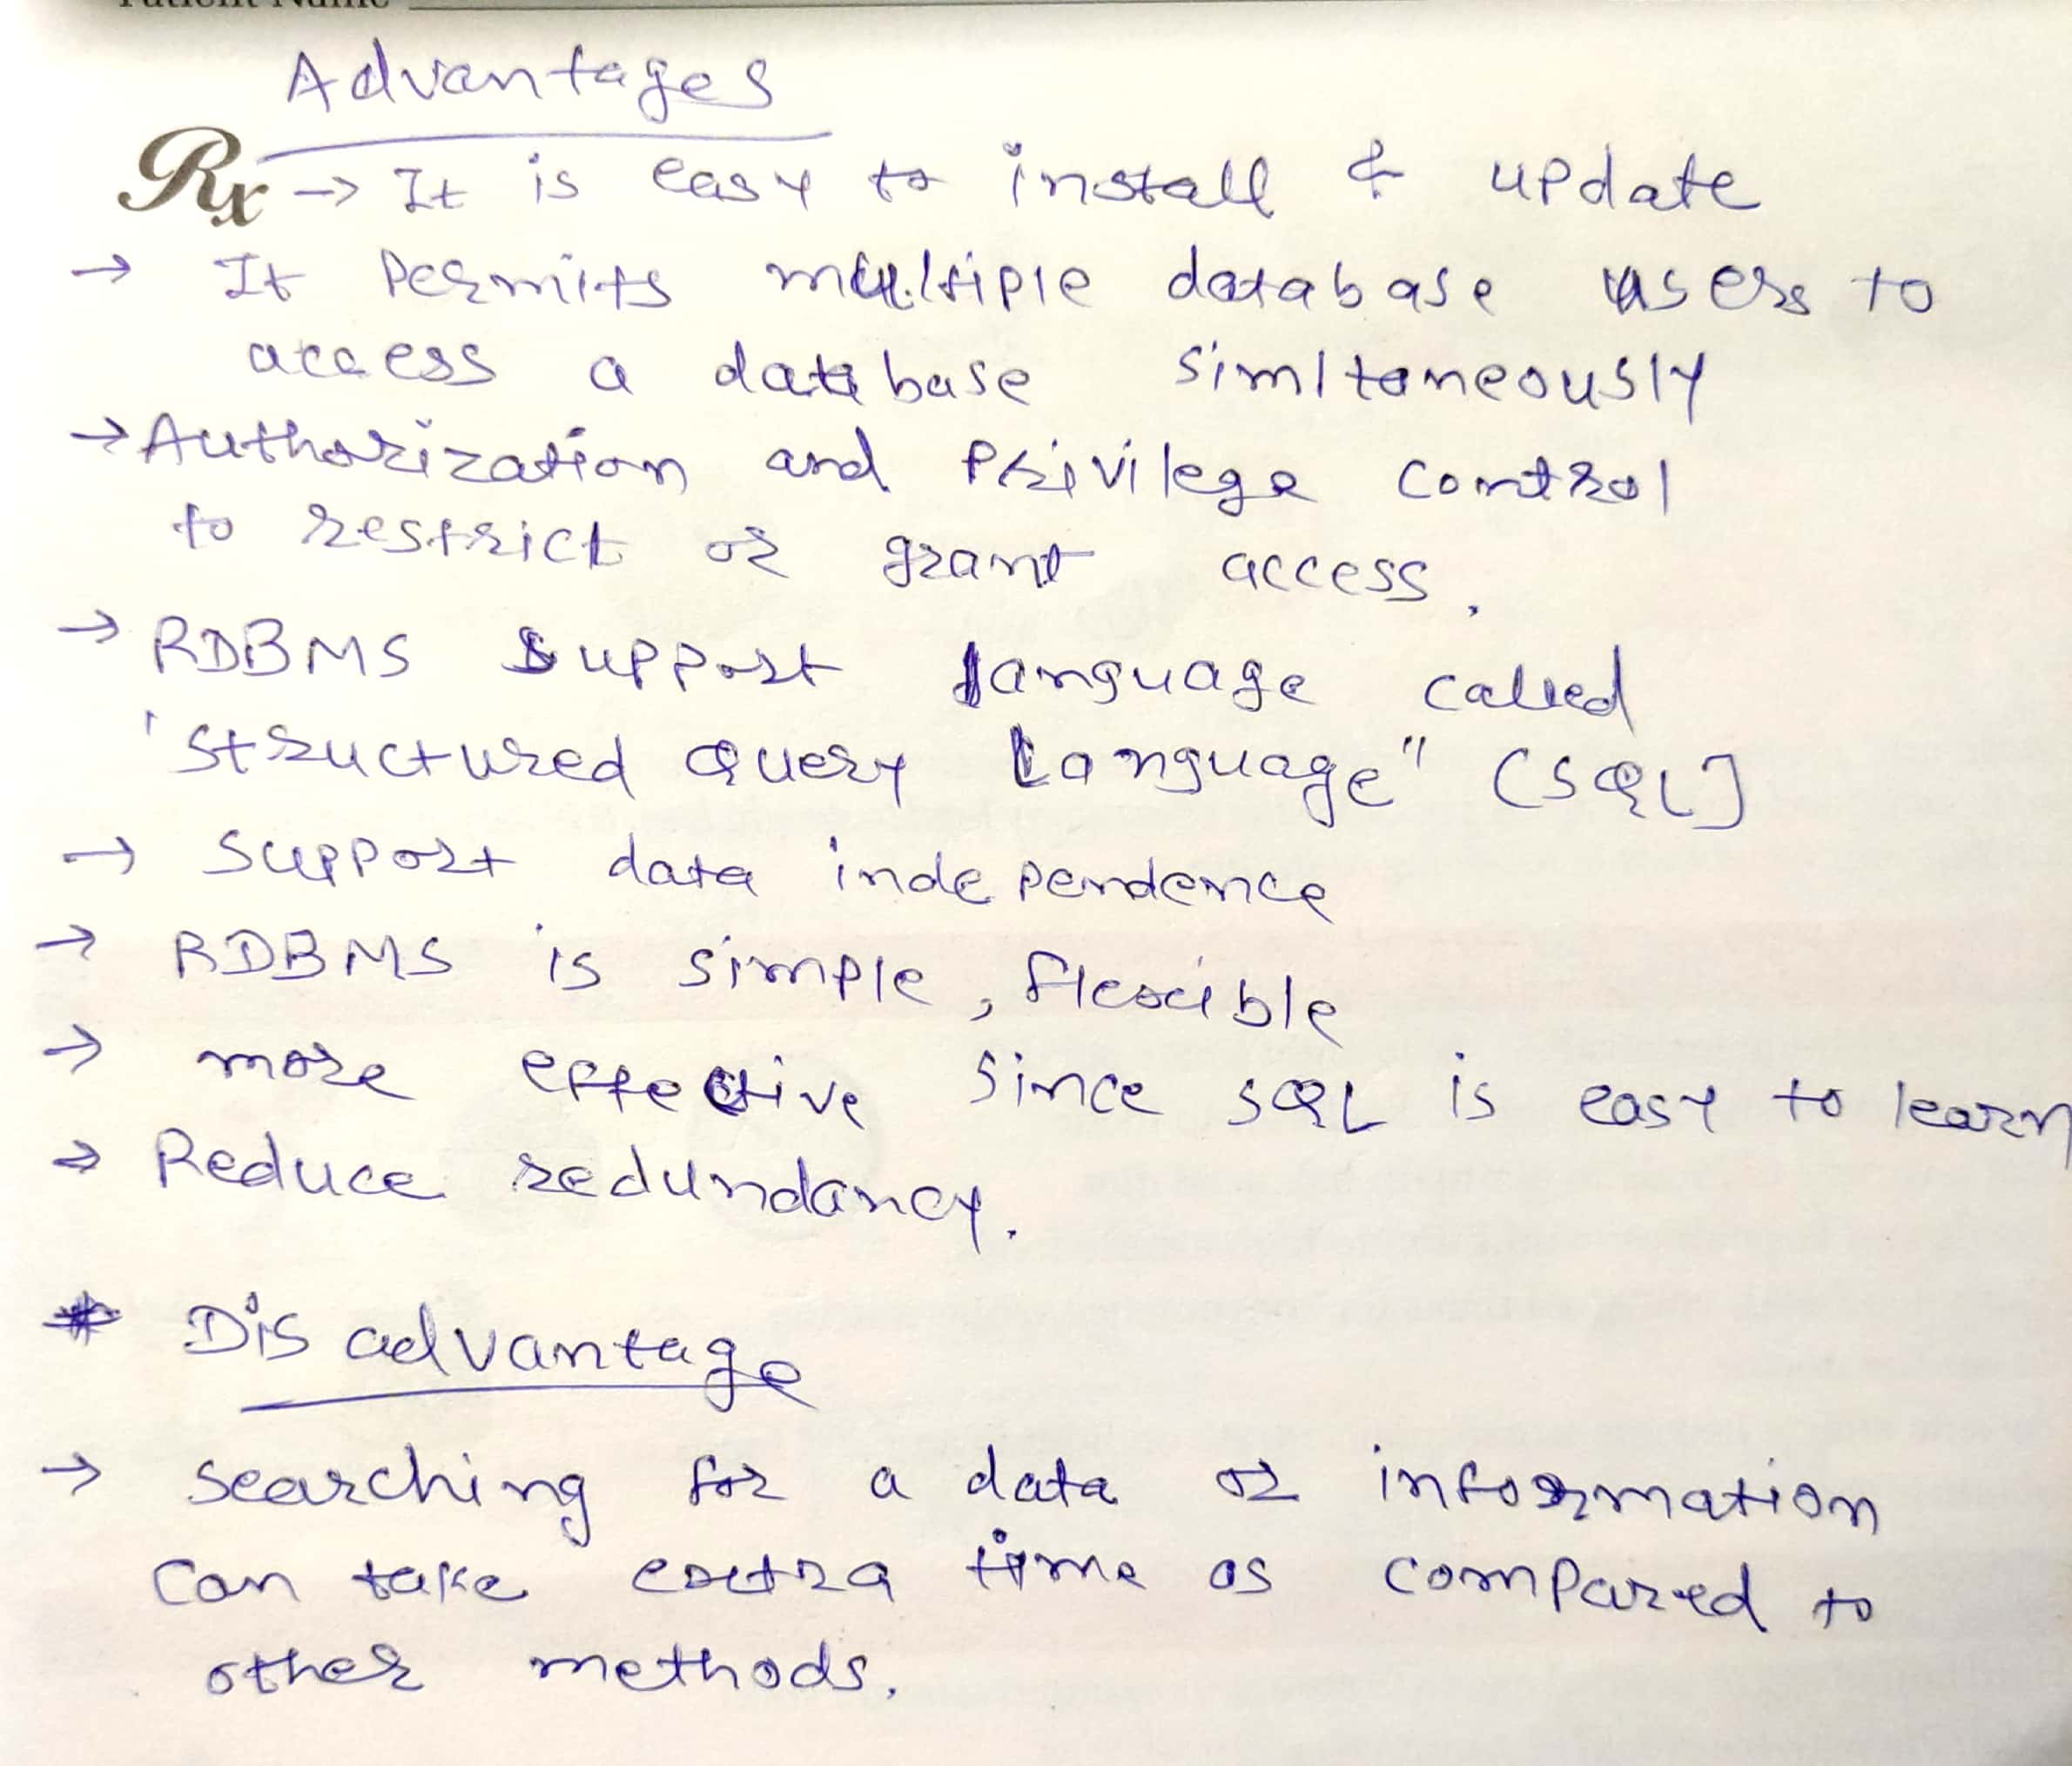 Patient Name
Advantages
Rx → It is easy to install & update
→ It Permits multiple database users to
access a database simltaneously
→ Authorization and Privilege control
to restrict or grant access.
→ RDBMS Support language called
'structured Query Language" (SQL]
→ Support data independence
→ RDBMS is simple, flexible
→ more effective since SQL is easy to learn
→ Reduce redundancy.
* Disadvantage
→ searching for a data or information
can take extra time as compared to
other methods.